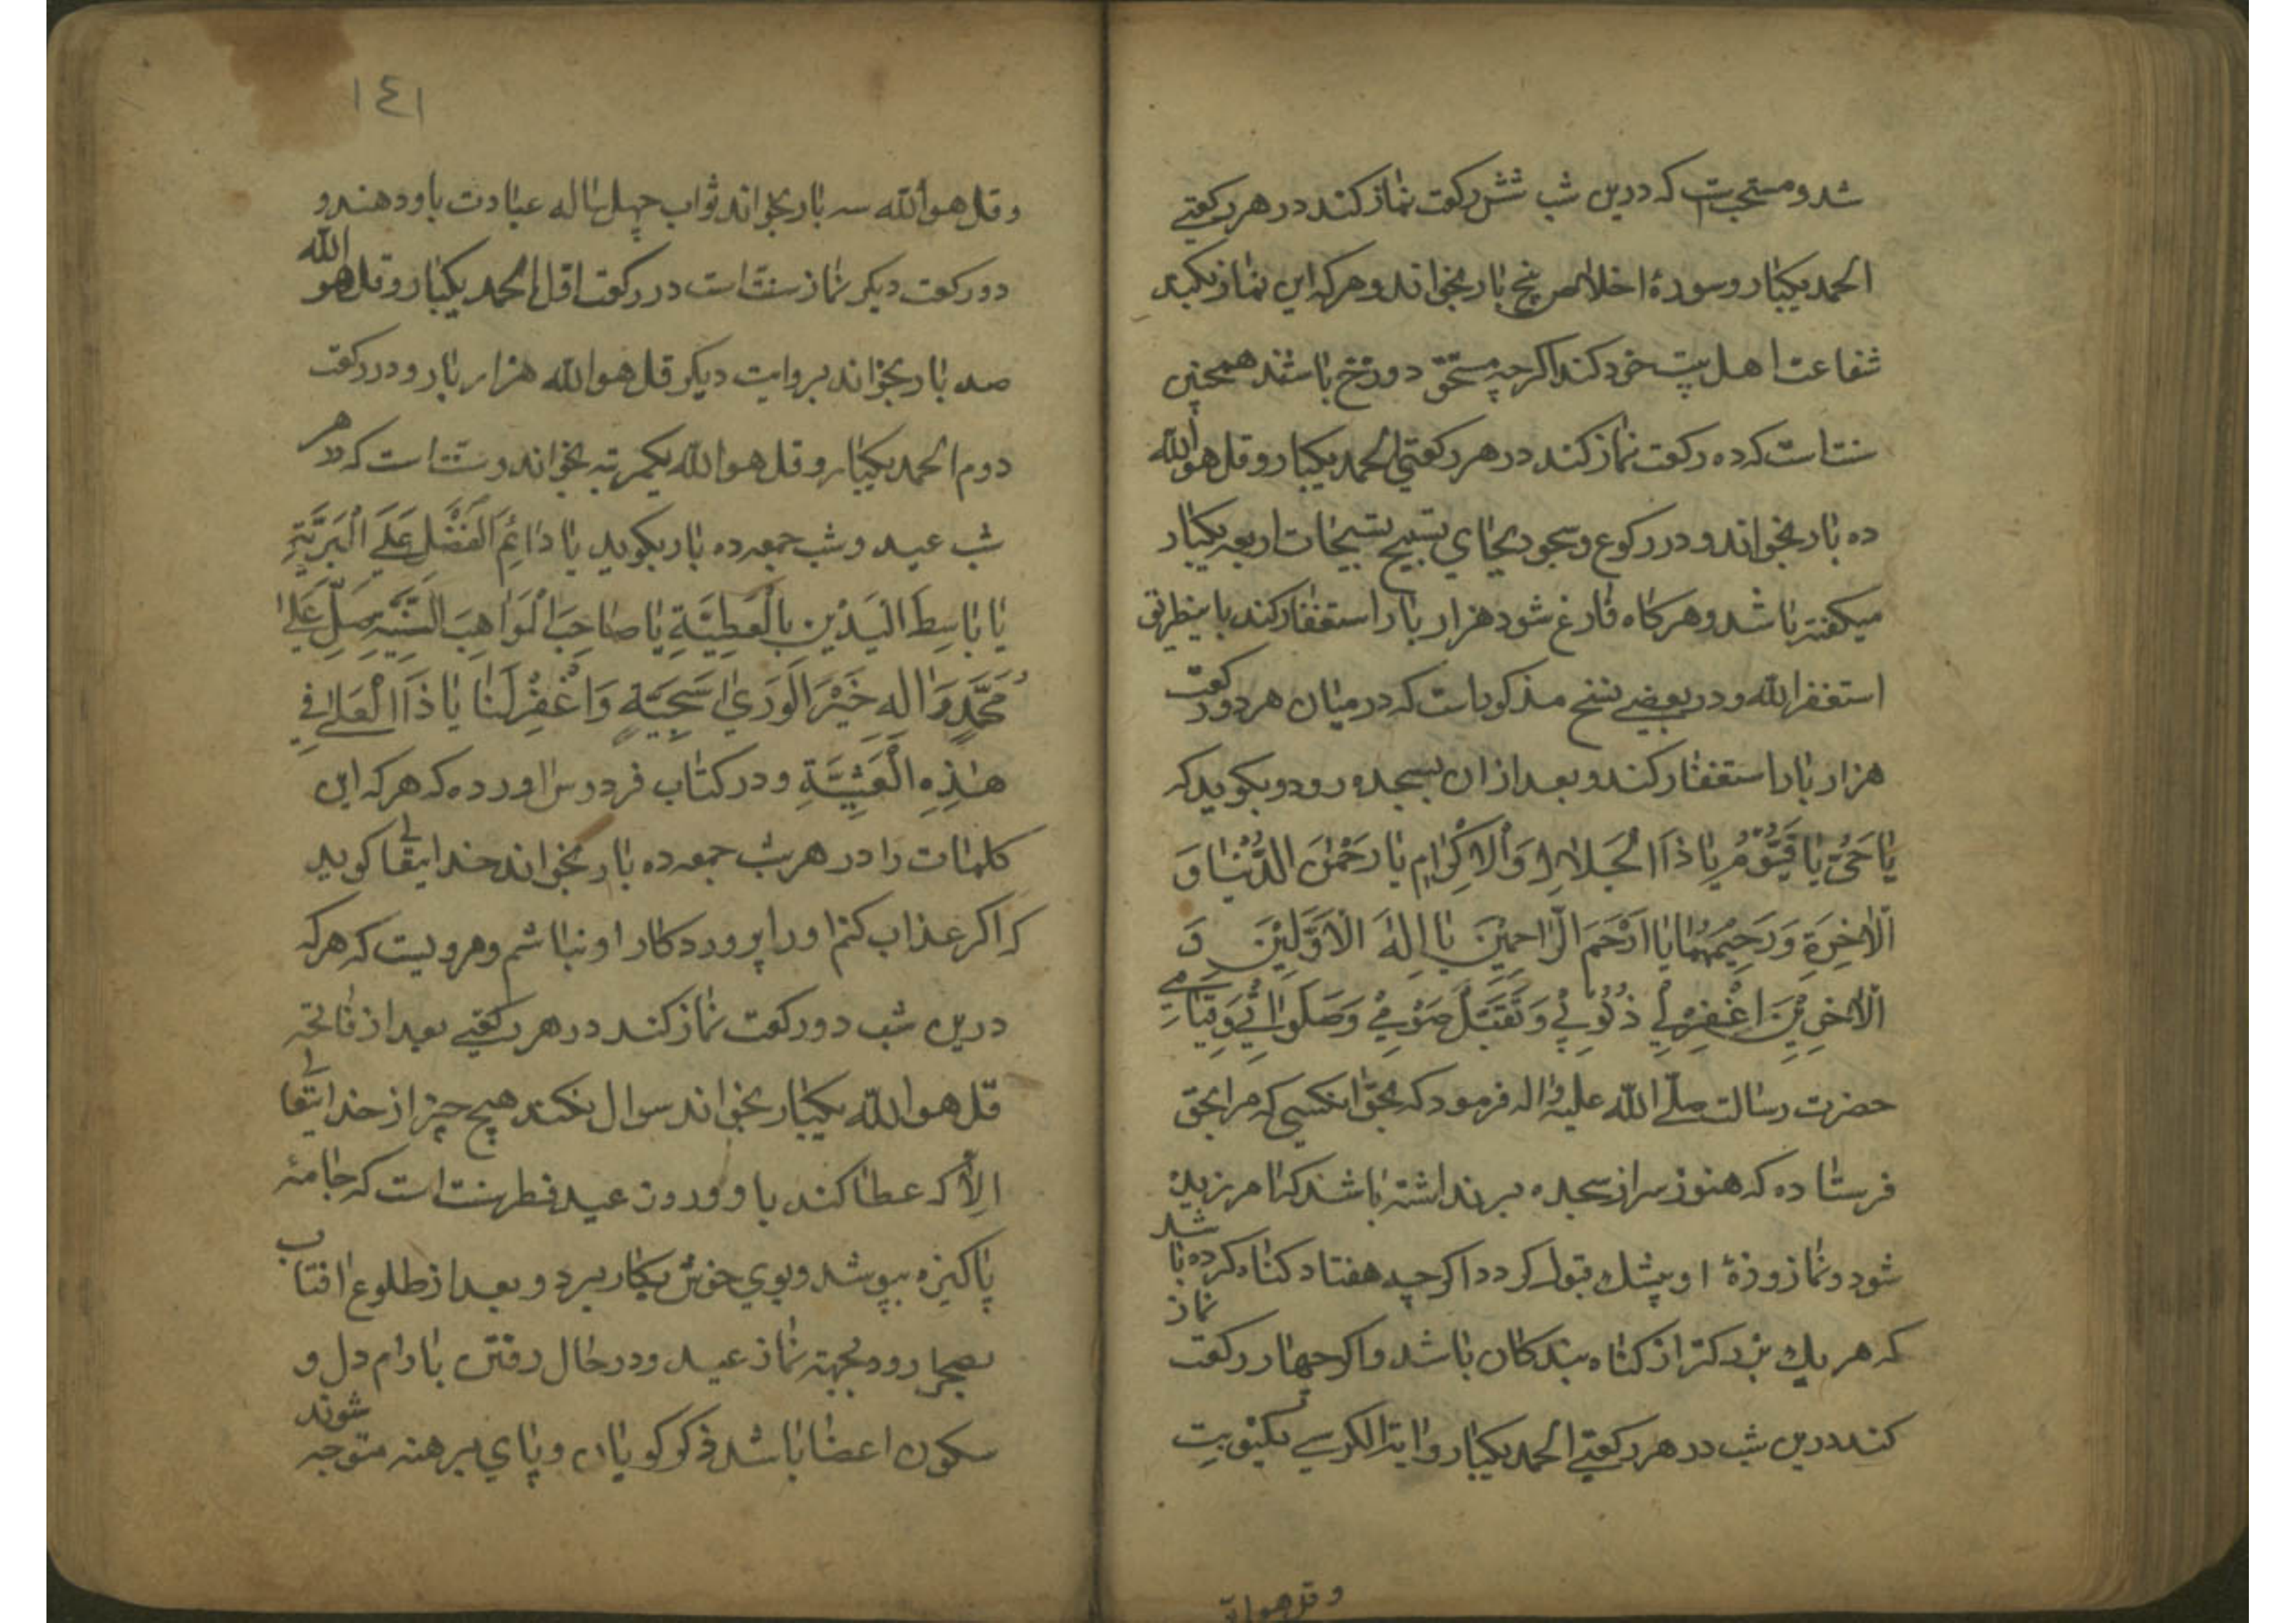 شد و مستحب است که درین شب شش رکعت نماز کند در هر رکعتی
الحمد یکبار و سورهٔ اخلاص پنج بار بخواند و هرکه این نماز بکند
شفاعت اهل بیت خود کند اکرچه مستحق دوزخ باشند همچنین
سنت است که ده رکعت نماز کند در هر رکعتی الحمد یکبار و قل هو الله
ده بار بخواند و در رکوع و سجود بجای تسبیح تسبیحات اربعه یکبار
میکفته باشد و هرکاه فارغ شود هزار بار استغفار کند باینطریق
استغفر الله و در بعضی نسخ مذکور است که در میان هر دو رکعت
هزار بار استغفار کند و بعد از ان بسجده رود و بکوید که
یَا حَیُّ یَا قَیُّوْمُ یَا ذَا الْجَلَالِ وَالْاِکْرَامِ یَا رَحْمٰنَ الدُّنْیَا وَ
الْاٰخِرَةِ وَرَحِیْمَهُمَا یَا اَرْحَمَ الرَّاحِمِیْنَ یَا اِلٰهَ الْاَوَّلِیْنَ وَ
الْاٰخِرِیْنَ اغْفِرْ لِیْ ذُنُوْبِیْ وَتَقَبَّلْ صَوْمِیْ وَصَلَوٰتِیْ وَقِیَامِیْ
حضرت رسالت صلّی الله علیه واله فرمود که بحق انکسی که مرا بحق
فرستاده که هنوز سر از سجده بر نداشته باشد که امرزیده
شود و نماز و روزهٔ او پیشك قبول کردد اکرچه هفتاد کناه کرده باشد
که هر یك بزرکتر از کناه بندکان باشد و اکر چهار رکعت نماز
کند درین شب در هر رکعتی الحمد یکبار و ایة الکرسی یکنوبت
وقل هو الله
١٤١
وقل هو الله سه بار بخواند ثواب چهل ساله عبادت باو دهند و
دو رکعت دیکر نماز سنت است در رکعت اول الحمد یکبار و قل هو الله
صد بار بخواند بروایت دیکر قل هو الله هزار بار و در رکعت
دوم الحمد یکبار و قل هو الله یکمرتبه بخواند و سنت است که در هر
شب عید و شب جمعه ده بار بکوید یَا دَائِمَ الْفَضْلِ عَلَی الْبَرِیَّةِ
یَا بَاسِطَ الْیَدَیْنِ بِالْعَطِیَّةِ یَا صَاحِبَ الْمَوَاهِبِ السَّنِیَّةِ صَلِّ عَلیٰ
مُحَمَّدٍ وَاٰلِهِ خَیْرَ الْوَرٰی سَجِیَّةٍ وَاغْفِرْ لَنَا یَا ذَا الْعُلیٰ فِیْ
هٰذِهِ الْعَشِیَّةِ و در کتاب فردوس اورده که هرکه این
کلمات را در هر شب جمعه ده بار بخواند خدایتعا کوید
که اکر عذاب کنم او را پروردکار او نباشم و مرویست که هرکه
درین شب دو رکعت نماز کند در هر رکعتی بعد از فاتحه
قل هو الله یکبار بخواند سوال نکند هیچ چیز از خدایتعا
الا که عطا کند باو و در روز عید فطر سنت است که جامهٔ
پاکیزه بپوشد و بوی خوش بکار برد و بعد از طلوع افتاب
بصحرا رود بجهة نماز عید و در حال رفتن بارام دل و
سکون اعضا باشد ذکر کویان و پای برهنه متوجه شوند